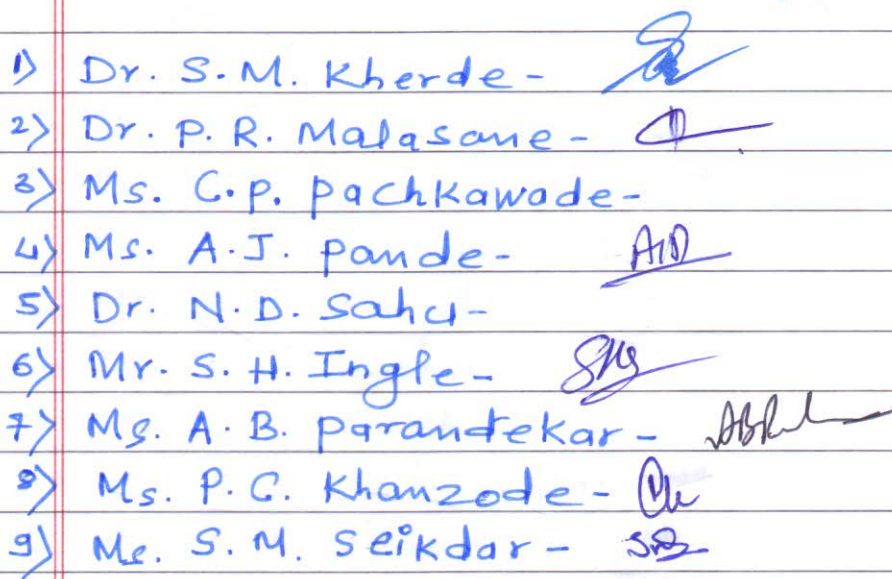 1) Dr. S.M. Kherde -
2) Dr. P. R. Malasane -
3) Ms. C.P. Pachkawade -
4) Ms. A.J. Pande -
5) Dr. N.D. Sahu -
6) Mr. S. H. Ingle -
7) Ms. A.B. Parandekar -
8) Ms. P.C. Khanzode -
9) Ms. S.M. Seikdar -